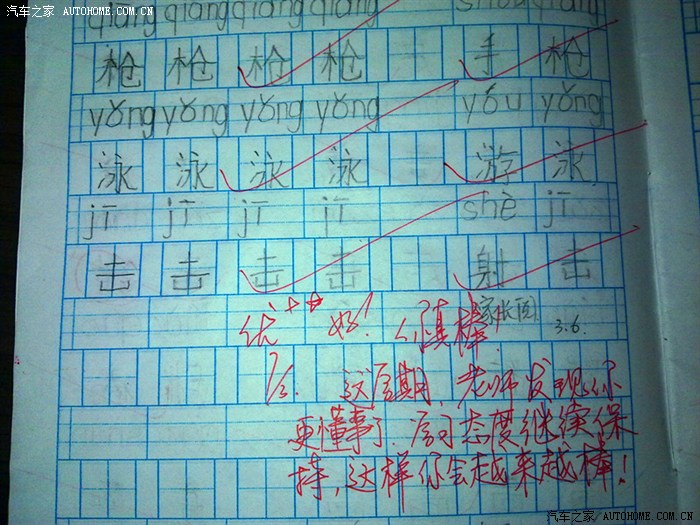 汽车之家 AUTOHOME.COM.CN
qiāng qiāng qiāng qiāng shǒu qiāng
枪 枪 枪 枪 手 枪
yǒng yǒng yǒng yǒng yóu yǒng
泳 泳 泳 泳 游 泳
jī jī jī jī shè jī
击 击 击 击 射 击
优++ 好! 你真棒 3.6.
7/3. 这周期, 老师发现你
更懂事了. 学习态度继续保
持, 这样你会越来越棒!
汽车之家 AUTOHOME.COM.CN